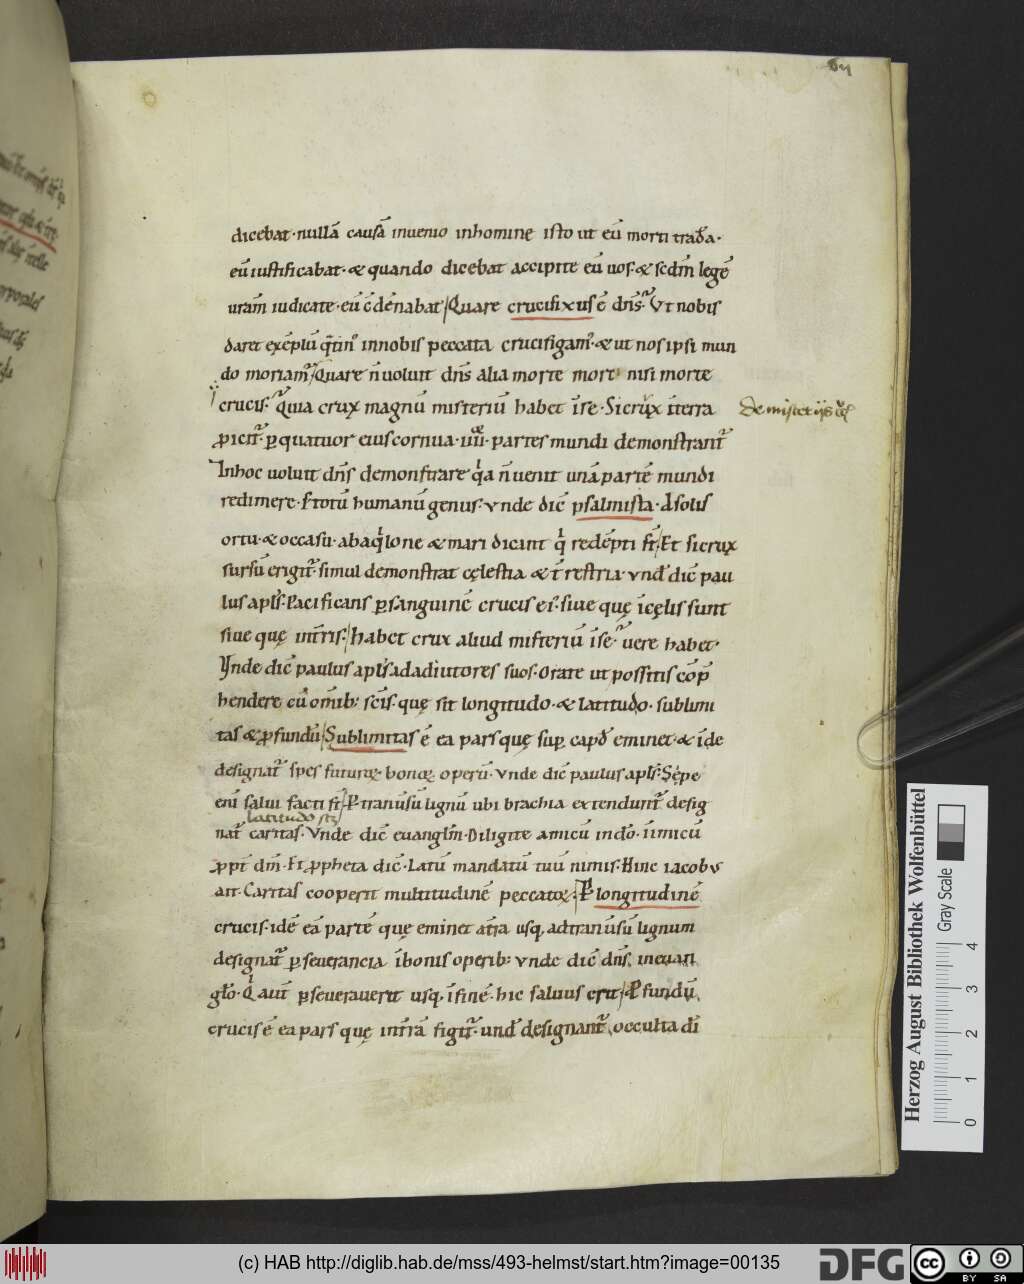 64
dicebat·nullā causā inuenio inhomine isto ut eū morti tradā·
eū iustificabat·& quando dicebat accipite eū uos·& scdm̄ legē
uram̄ iudicate·eū c̄dēnabat Quare crucifixus ē dn̄s· Vt nobis
daret exēplū q̄tin᷒ innobis peccata crucifigam᷒·& ut nos ipsi mun
do moriam᷒ Quare n̄ uoluit dn̄s alia morte mori nisi morte
crucis· Quia crux magnū misteriū habet ī se·Si crux ī terra
de misteriis
ꝓicit᷒·ꝑ quatuor eius cornua·iiii·partes mundi demonstrant᷒
Inhoc uoluit dn̄s demonstrare q̇a n̄ uenit unā partē mundi
redimere·s totū humanū genus·vnde dic̄ psalmista·A solis
ortu·& occasu·ab aq̇lone & mari dicant q̇ redēpti st̄ Et si crux
sursū erigit᷒·simul demonstrat cęlestia & t̄restria·vnd̄ dic̄ pau
lus apl̄s·Pacificans ꝑ sanguinē crucis ei᷒·siue quę ī cęlis sunt
siue quę int̄ris· habet crux aliud misteriū ī se· uere habet·
Vnde dic̄ paulus apl̄s ad adiutores suos·Orate ut possitis cōp̄
hendere cū omib; sc̄is·quę sit longitudo·& latitudo·sublimi
tas & ꝓfundū Sublimitas ē ea pars quę suꝑ capd̄ eminet·& īde
designat᷒ spes futurę· bonoꝝ operū·vnde dic̄ paulus apl̄s·Spe
eni salui facti st̄ P tranūsū lignū ubi brachia extendunt᷒ desig
latitudo
nat᷒ caritas·Vnde dic̄ euanglm̄·Diligite amicū in do·inimicū
ꝓpt̄ dm̄·Et ꝓpheta dic̄·Latū mandatū tuū nimis·Hinc iacobus
ait·Caritas cooperit multitudinē peccatoꝝ· P longitudinē
crucis·idē eā partē quę eminet a t̄ra usq; ad tranūsū lignum
designat᷒ ꝑseuerancia ī bonis operib; vnde dic̄ dn̄s, ineuan
glo·Q̇ aut̄ ꝑseuerauerit usq; ī finē·hic saluus erit Pfundū
crucis ē ea pars quę int̄rā figit᷒·und̄ designant᷒ occulta dī
Herzog August Bibliothek Wolfenbüttel
Gray Scale
0 1 2 3 4
(c) HAB http://diglib.hab.de/mss/493-helmst/start.htm?image=00135
DFG
cc BY SA